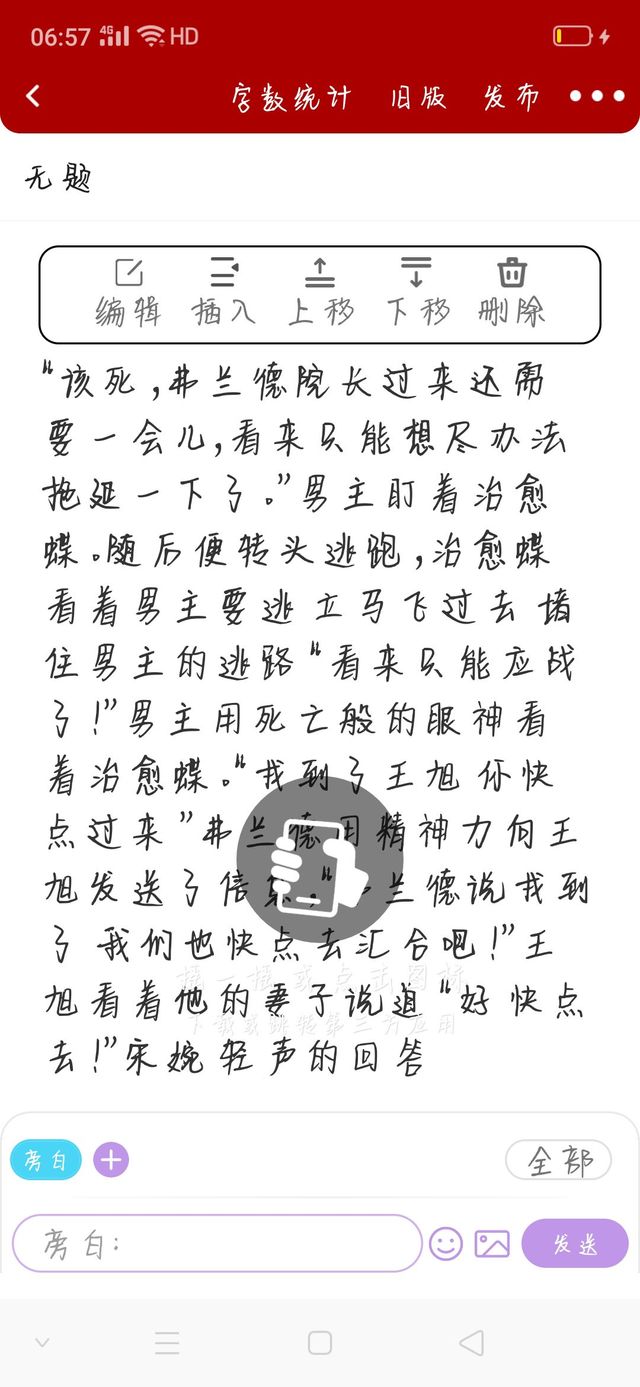 06:57 4G HD
字数统计 旧版 发布
无题
编辑 插入 上移 下移 删除
“该死,弗兰德院长过来还需
要一会儿,看来只能想尽办法
拖延一下了。”男主盯着治愈
蝶。随后便转头逃跑,治愈蝶
看着男主要逃立马飞过去堵
住男主的逃路“看来只能应战
了!”男主用死亡般的眼神看
着治愈蝶。“找到了王旭你快
点过来”弗兰德用精神力向王
旭发送了信息,“兰德说找到
了 我们也快点去汇合吧!”王
摇一摇或点击图标
旭看着他的妻子说道“好 快点
下载或跳转第三方应用
去!”宋婉轻声的回答
旁白 全部
旁白: 发送